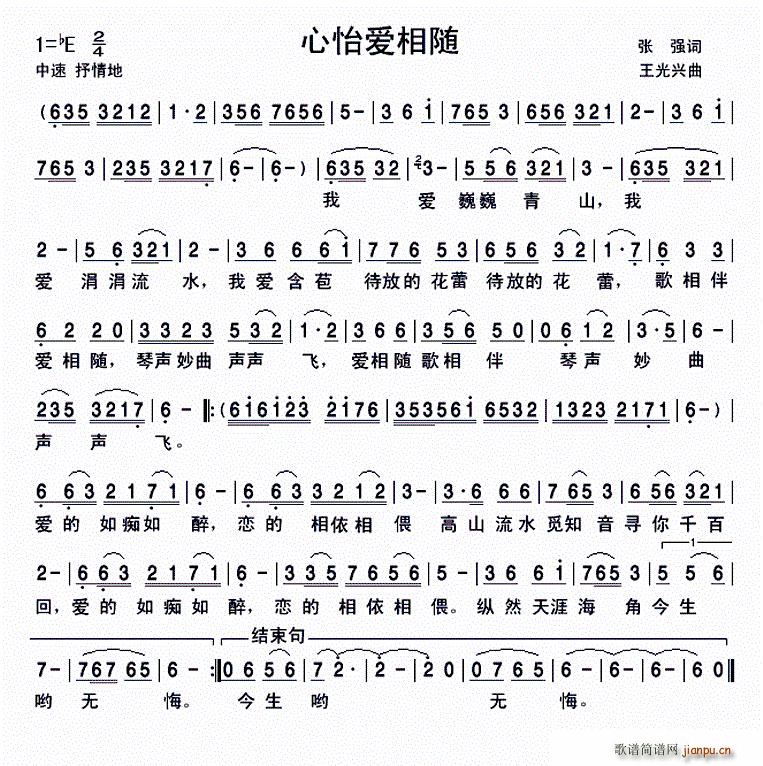 心怡爱相随
1=♭E 2/4
张 强词
中速 抒情地
王光兴曲
(635 3212|1·2|356 7656|5-|36i|765 3|656 321|2-|36i|
765 3|235 3217|6-|6-)|635 32|²3-|556 321|3-|635 321|
我 爱 巍巍 青 山, 我
2-|56 321|2-|36 66i|776 53|656 32|1·7|6 33|
爱 涓涓流 水, 我爱含苞 待放的花蕾待放的花 蕾, 歌相伴
62 20|3323 532|1·2|366|356 50|06 12|3·5|6-|
爱相随, 琴声妙曲 声声 飞, 爱相随歌相 伴 琴声 妙 曲
235 3217|6-:(6i6i2i3 2i76|35356i 6532|1323 2171|6-)|
声 声 飞。
6 63 2171|6-|6 63 3212|3-|3·6 66|765 3|656 321|
爱的 如痴如 醉, 恋的 相依相 偎 高山流水觅知 音寻你千百
1
2-|663 2171|6-|335 7656|5-|36 6i|765 3|5 56|
回, 爱的 如痴如 醉, 恋的 相依相 偎。 纵然天涯海 角今生
结束句
7-|767 65|6-:06 56|7 2·|2·-|20|0765|6-|6-|60||
哟 无 悔。 今生 哟 无 悔。
歌谱简谱网 jianpu.cn